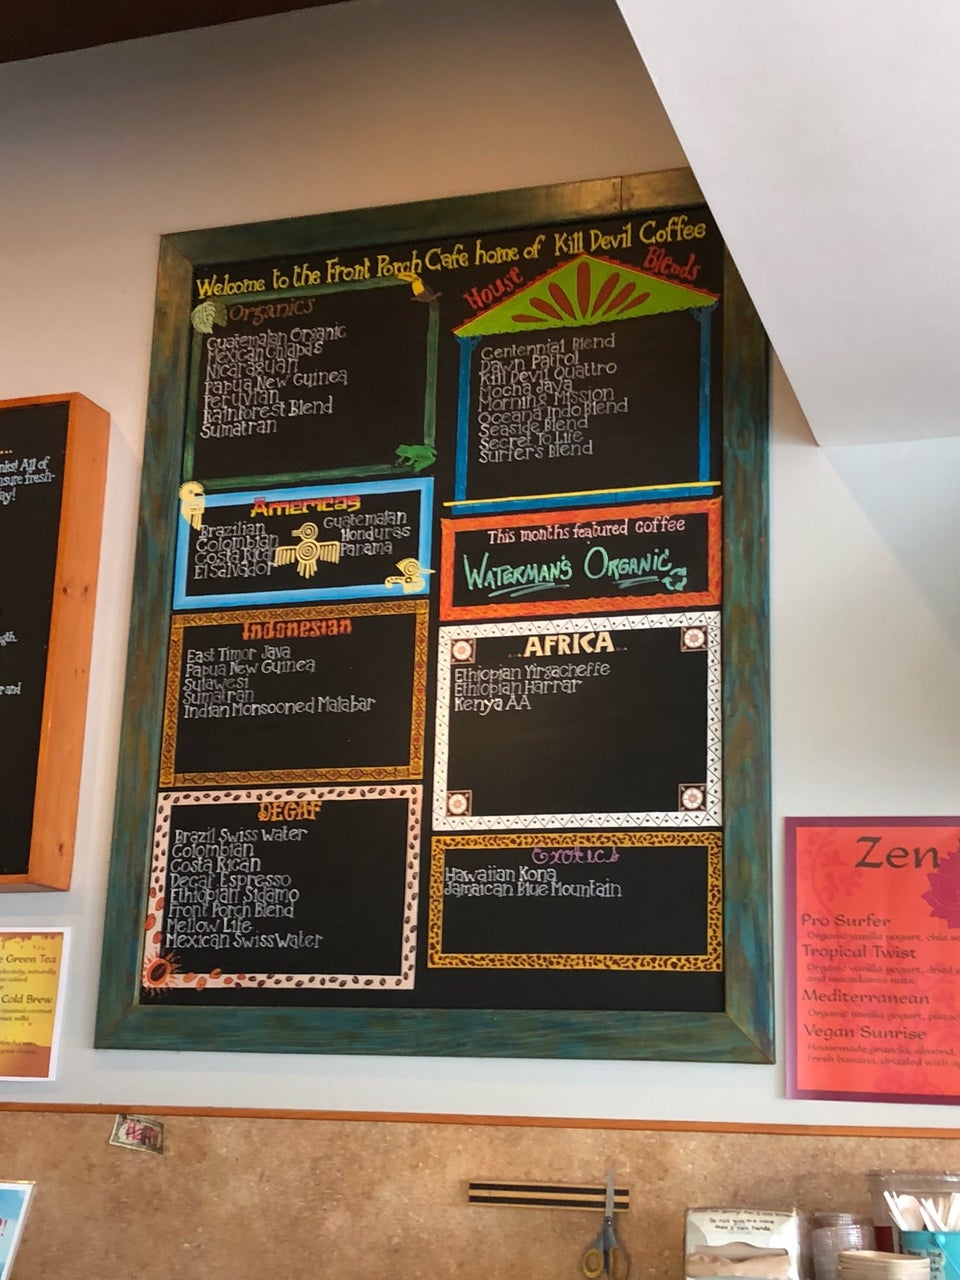 Welcome to the Front Porch Cafe home of Kill Devil Coffee
Organics
Guatemalan Organic
Mexican Chiapas
Nicaraguan
Papua New Guinea
Peruvian
Rainforest Blend
Sumatran
House Blends
Centennial Blend
Dawn Patrol
Kill Devil Quattro
Mocha Java
Morning Mission
Oceana Indo Blend
Seaside Blend
Secret To Life
Surfer's Blend
Americas
Brazilian
Colombian
Costa Rica
El Salvador
Guatemalan
Honduras
Panama
This months featured coffee
WATERMAN'S ORGANIC
Indonesian
East Timor Java
Papua New Guinea
Sulawesi
Sumatran
Indian Monsooned Malabar
AFRICA
Ethiopian Yirgacheffe
Ethiopian Harrar
Kenya AA
DECAF
Brazil Swiss Water
Colombian
Costa Rican
Decaf Espresso
Ethiopian Sidamo
Front Porch Blend
Mellow Life
Mexican Swiss Water
Exotics
Hawaiian Kona
Jamaican Blue Mountain
All of
fresh-
and
Green Tea
Cold Brew
Zen
Pro Surfer
Organic vanilla yogurt, chia
Tropical Twist
Organic vanilla yogurt, dried
and macadamia nuts
Mediterranean
Organic vanilla yogurt,
Vegan Sunrise
Housemade granola, almond,
fresh banana, drizzled with